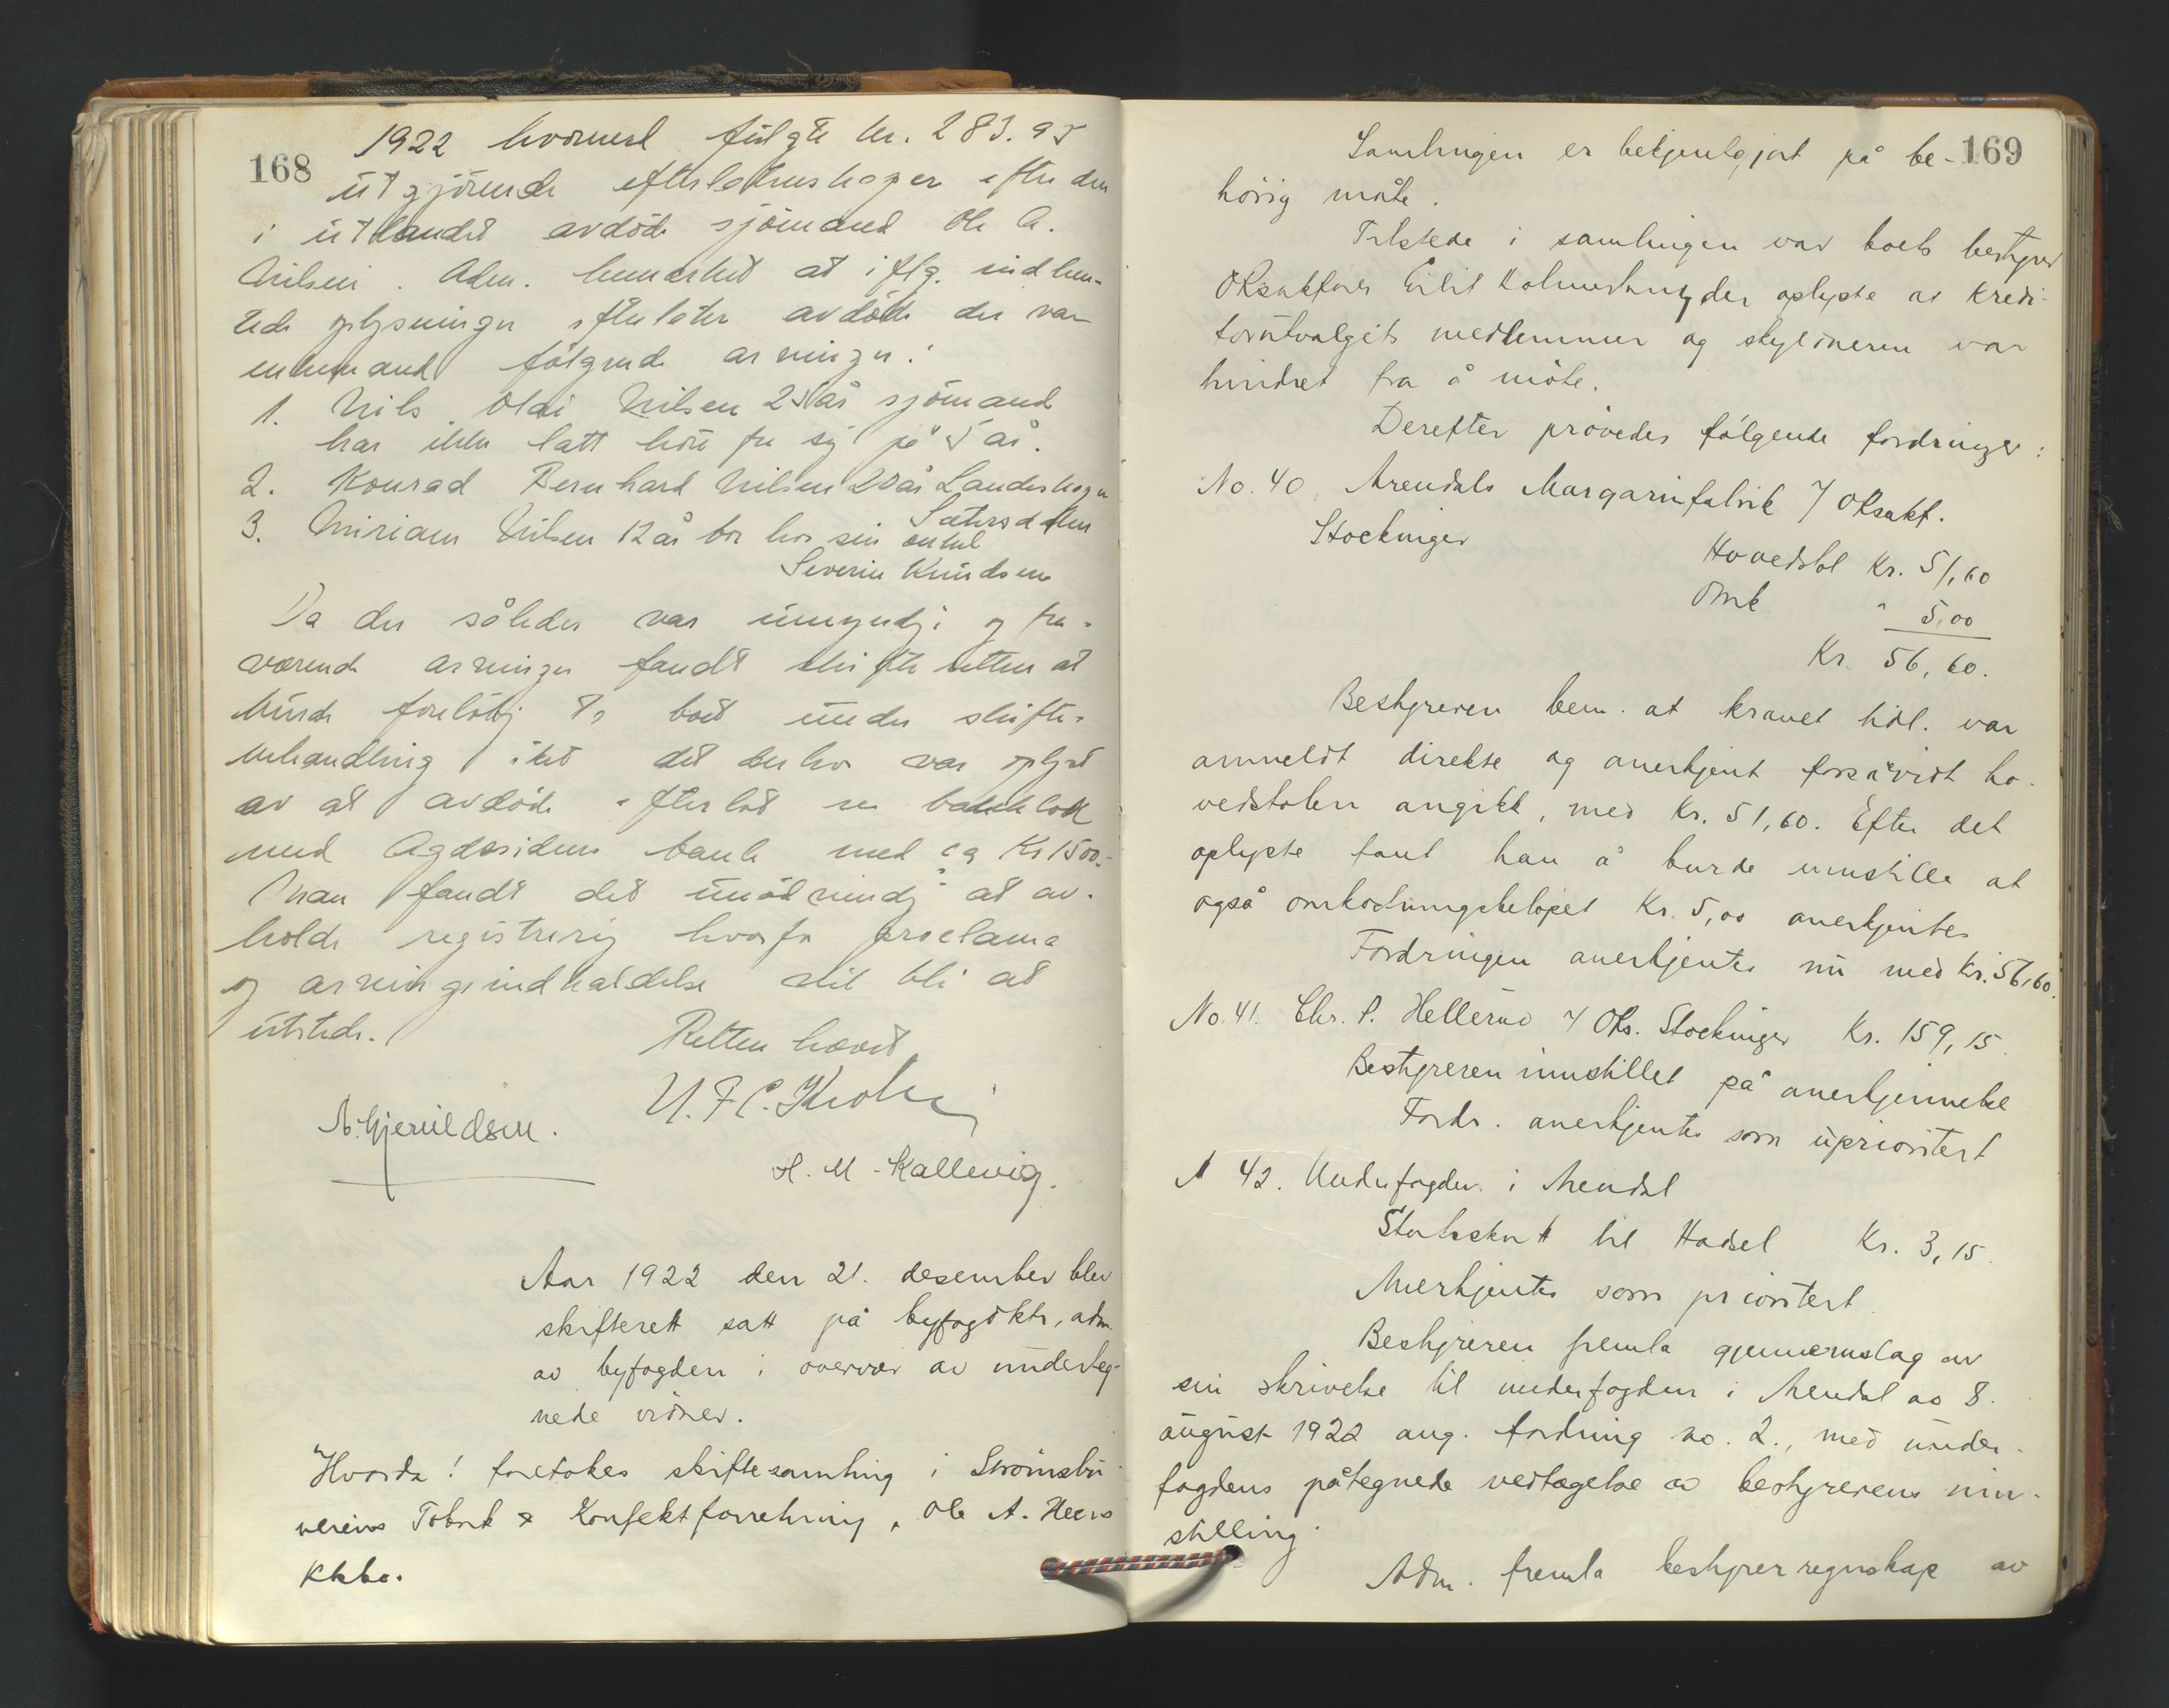 168
1922 hvormed fulgte kr. 283.95
utgjörende efterladenskaper efter den
i utlandet avdöde sjömand Ole A.
Nilsen. Adm. bemerket at iflg. indhen-
tede oplysninger efterlater avdöde der var
enkemand følgende arvinger:
1. Nils Olai Nilsen 25 år sjömand
har ikke latt höre fra sig på 5 år.
2. Konrad Bernhard Nilsen 20 år Landeskogen
Sætersdalen
3. Miriam Nilsen 12 år bor hos sin onkel
Severin Knudsen
Da der således var umyndige og fra-
værende arvinger fandt skifteretten at
burde foreløbig ta boet under skifte-
behandling idet det derhos var oplyst
av at avdöde efterlot en bankbok
med Agdesidens bank med ca Kr 1500.-
Man fandt det unödvendig at av-
holde registrering hvorfor proclama
og arvingsindkaldelse vil bli at
utstede.
Retten hævet
N. F. C. Krohn
N. Gjeruldsen.
H. M. Kallevig.
Aar 1922 den 21. desember blev
skifterett satt på byfogdktr, adm.
av byfogden i overvær av underteg-
nede vidner.
Hvorda! foretokes skiftesamling i Strömsbu-
verens Tobak & Konfektforretning, Ole A. Heers
Kkbo.
169
Samlingen er bekjentgjort på be-
hörig måte.
Tilstede i samlingen var boets bestyrer
ORsakfører Eilif Holmesland, der oplyste at kredi-
torutvalgets medlemmer og skyldneren var
hindret fra å möte.
Derefter prövedes fölgende fordringer:
No. 40. Arendals Margarinfabrik v/ ORsakf.
Stockinger
Hovedstol Kr. 51,60
Omk " 5,00
Kr. 56,60.
Bestyreren bem. at kravet tidl. var
anmeldt direkte og anerkjent forsåvidt ho-
vedstolen angikk, med Kr. 51,60. Efter det
oplyste fant han å burde innstille at
også omkostningsbelöpet Kr. 5,00 anerkjentes
Fordringen anerkjentes nu med Kr. 56,60.
No. 41. Chr. P. Hellesund v/ ORs. Stockinger Kr. 159,15.
Bestyreren innstillet på anerkjennelse
Fordr. anerkjentes som uprioritert
N 42. Underfogden i Arendal
Statsskatt til Hadsel Kr. 3,15.
Anerkjentes som prioritert.
Bestyreren fremla gjennemslag av
sin skrivelse til underfogden i Arendal av 8.
august 1922 ang. fordring no. 2., med under-
fogdens påtegnede vedtagelse av bestyrerens inn-
stilling.
Adm. fremla bestyrerregnskap av